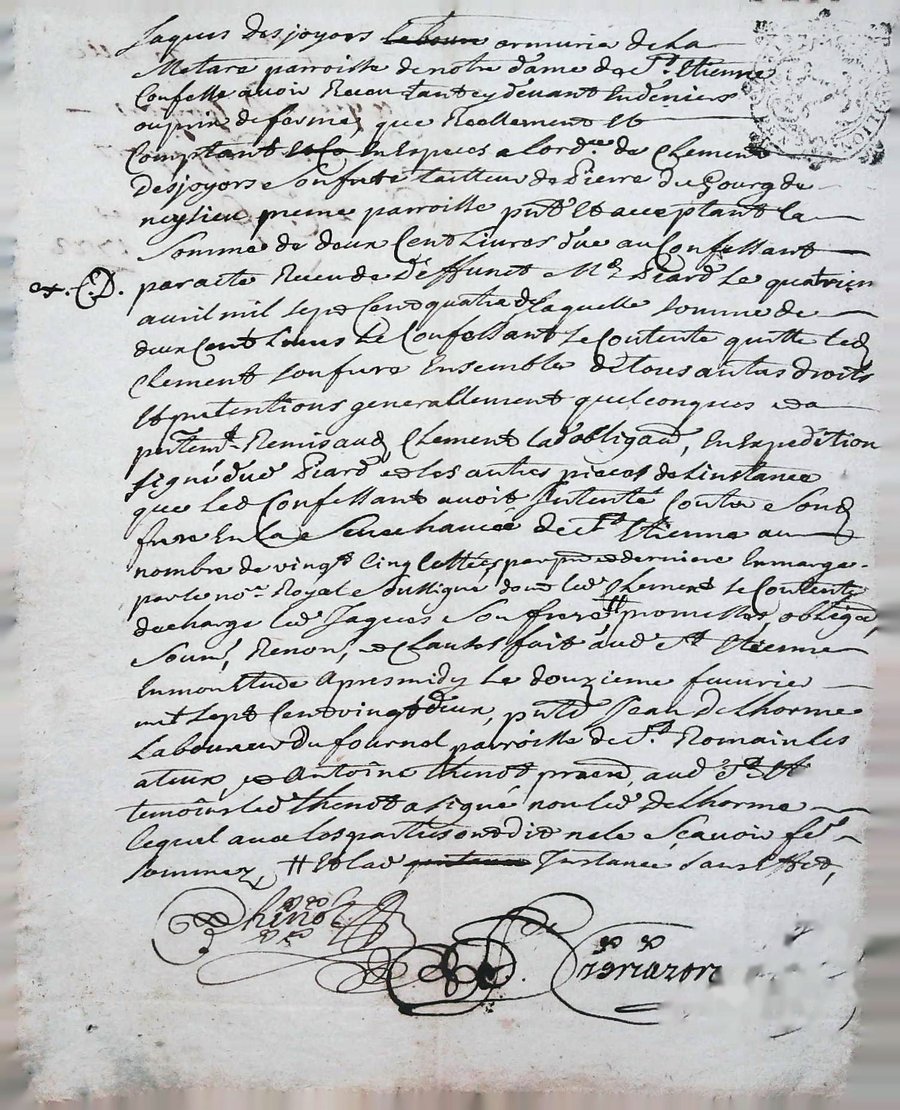 Jaques desjoyors laboure armurié de La
Metare parroisse de notre dame de St. Etienne
Confesse avoir Receu tant cy devant En deniers
ou prin de ferme, que Reellement Et
Comptant En Especes a lord.re de Clement
Desjoyors son frere tailleur de Pierre du Bourg de
meme parroisse pnt Et acceptant la
Somme de deux Cent Livres due au Confessant
par acte Receu de Deffunct Me Picard le quatrien
avril mil sept Cent quatre de laquelle somme de
deux Cent Livres Le Confessant Se Contente quitte led
Clement son frere Ensemble de tous autres droits
Et pretentions generallement quelconques
Remis aud Clement lad obliga.on, En Expedition
signé dud Picard et les autres pieces de linstance
que Led Confessant avoit Intenté Contre Sond
frere En la Senechaucée de St. Etienne au
nombre de vingt Cinq Cottées par pre et derniere En marge
par le nore Royal Soussigné dont led Clement Se Contente
decharge led Jaques Son frere # promettes, obliga,
Soum, Renon, et Clauses fait aud St Etienne
apres midy le douzieme fevrier
mil sept Cent vingt deux, pnts Jean Delhorme
Laboureur du fournel parroisse de St. Romain les
ateux, et Antoine thenot praen, aud St Et
temoins led thenot a signé non led Delhorme
lequel avec les parties ont dit ne le Scavoir
sommez, # Et lad Instance sans Effect,